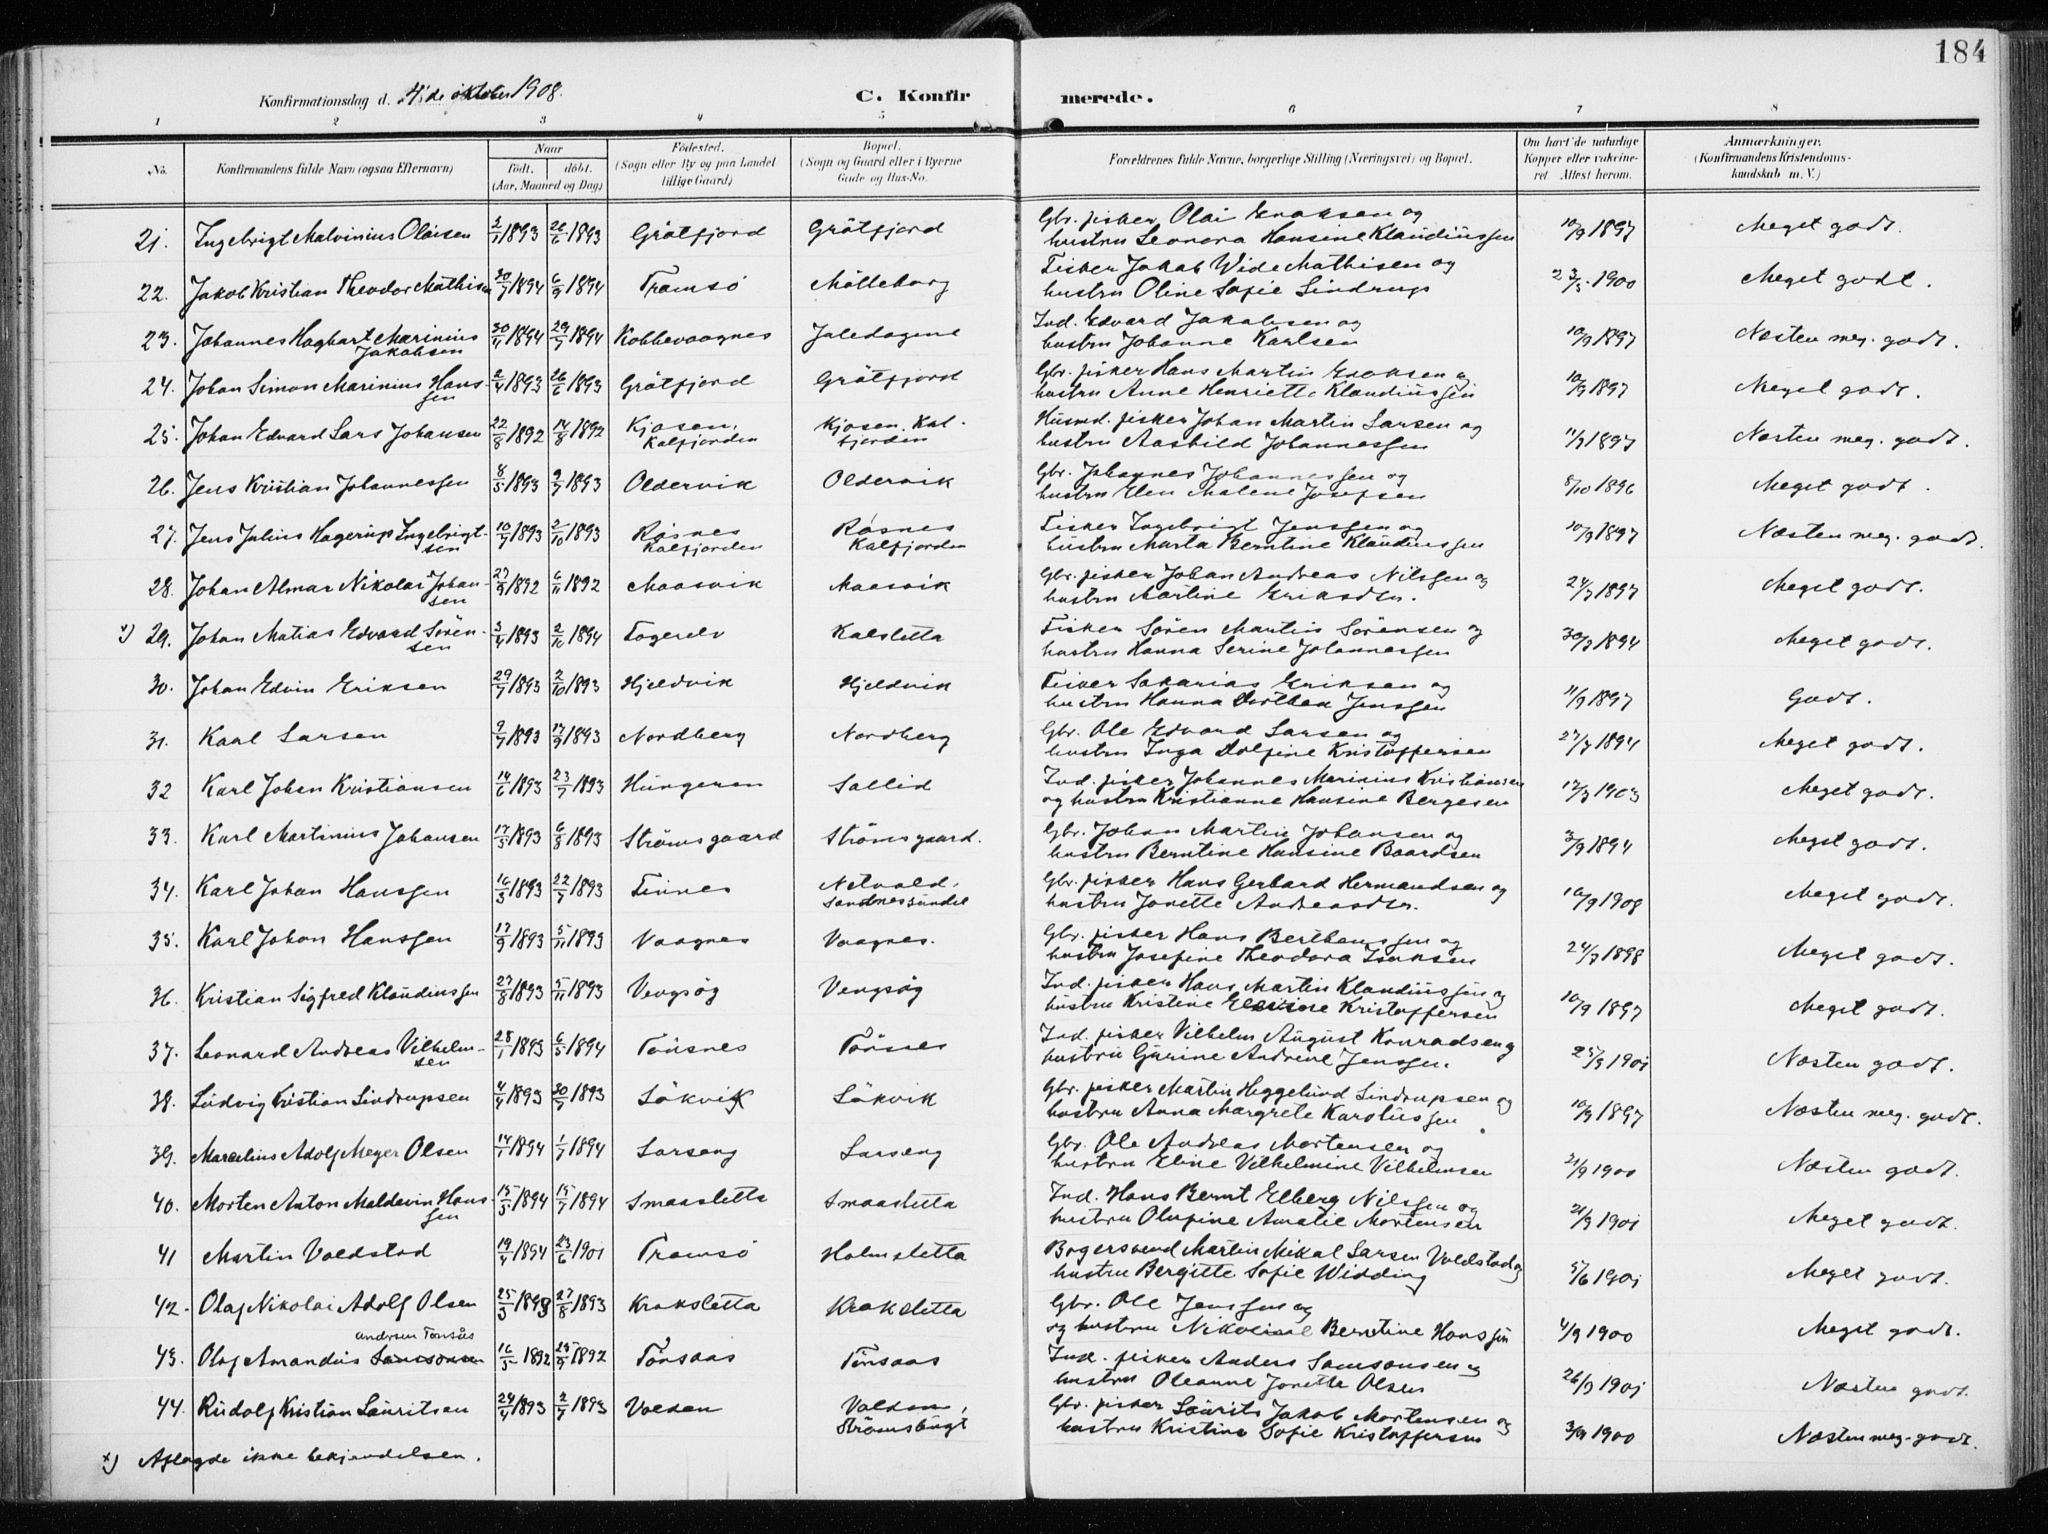 184
Konfirmationsdag d. 4'de oktober 1908.
C. Konfirmerede.
1 2 3 4 5 6 7 8
No.
Konfirmandens fulde Navn (ogsaa Efternavn)
Naar
født. døbt.
(Aar, Maaned og Dag)
Fødested.
(Sogn eller By og paa Landet
tillige Gaard)
Bopæl.
(Sogn og Gaard eller i Byerne
Gade og Hus-No.
Forældrenes fulde Navne, borgerlige Stilling (Næringsvei) og Bopæl.
Om havt de naturlige
Kopper eller vakcine-
ret Attest herom.
Anmærkninger.
(Konfirmandens Kristendoms-
kundskab m. V.)
21. Ingebrigt Malvinius Olaisen 2/1 1893 26/6 1893 Grötfjord Grötfjord Gbr. fisker Olai Eraksen og 10/9 1897 Meget godt.
hustru Leonora Hansine Klaudiussen
22. Jakob Kristian Theodor Mathisen 30/7 1894 6/9 1894 Tromsö Mölleborg Fisker Jakob Wide Mathisen og 23/5 1900 Meget godt.
hustru Oline Sofie Lindrup
23. Johannes Hagbart Marinius 30/4 1894 29/7 1894 Kobbevaagnes Ind. Edvard Jakobsen og 10/9 1897 Næsten meg. godt.
Jakobsen hustru Johanne Karlsen
24. Johan Simon Marinius Hans- 2/4 1893 26/6 1893 Grötfjord Grötfjord Gbr. fisker Hans Martin Eraksen og 10/9 1897 Meget godt.
sen hustru Anne Henriette Klaudiussen
25. Johan Edvard Lars Johansen 22/8 1892 14/8 1892 Kjosen, Kjosen, Kal- Husmd. fisker Johan Martin Larsen og 11/9 1897 Næsten meg. godt.
Kalfjorden fjorden hustru Aashild Johannessen
26. Jens Kristian Johannessen 8/5 1893 9/7 1893 Oldervik Oldervik Gbr. Johannes Johannessen og 8/10 1896 Meget godt.
hustru Elen Malene Josefsen
27. Jens Julius Hagerup Ingebrigt- 10/7 1893 2/10 1893 Røsnes Røsnes Fisker Ingebrigt Jenssen og 10/9 1897 Næsten meg. godt.
sen Kalfjorden Kalfjorden hustru Marta Berntine Klaudiussen
28. Johan Almar Nikolai Johan- 27/9 1892 6/11 1892 Maasvik Maasvik Gbr. fisker Johan Andreas Nilssen og 24/7 1897 Meget godt.
sen hustru Martine Eriksdtr.
x) 29. Johan Matias Edvard Sören- 3/4 1893 2/10 1894 Fagerelv Kalsletta Fisker Sören Martin Sörensen og 30/7 1894 Meget godt.
sen hustru Hanna Serine Johannessen
30. Johan Edvin Eriksen 29/7 1893 2/10 1893 Hjeldvik Hjeldvik Fisker Sakarias Eriksen og 11/9 1897 Godt.
hustru Hanna Dorthea Jenssen
31. Karl Larsen 9/7 1893 17/9 1893 Nordberg Nordberg Gbr. Ole Edvard Larsen og 27/7 1894 Meget godt.
hustru Inga Dolfine Kristoffersen
32 Karl Johan Kristiansen 14/6 1893 23/7 1893 Hungeren Sollid Ind. fisker Johannes Marinius Kristiansen 12/3 1903 Meget godt.
og hustru Kristianne Hansine Bergesen
33. Karl Martinius Johansen 17/5 1893 6/8 1893 Strömsgaard Strömsgaard. Gbr. Johan Martin Johansen og 3/9 1894 Meget godt.
hustru Berntine Hansine Baardsen
34. Karl Johan Hanssen 16/5 1893 22/7 1893 Finnes Netvold, Gbr. fisker Hans Gerhard Hermandsen og 10/9 1908 Meget godt.
Sandnessundet hustru Jonette Andreasdtr.
35. Karl Johan Hanssen 17/9 1893 5/11 1893 Vaagnes Vaagnes. Gbr. fisker Hans Berthenssen og 24/7 1898 Meget godt.
hustru Josefine Theodora Isaksen
36. Kristian Sigfred Klaudiussen 27/8 1893 5/11 1893 Vengsøg Vengsøg Ind. fisker Hans Martin Klaudiussen og 10/9 1897 Meget godt.
hustru Kristine Kristoffersen
37. Leonard Andreas Vilhelm- 28/1 1893 6/5 1894 Tönsnes Tönsnes Ind. fisker Vilhelm August Konradsen og 25/9 1901 Næsten godt.
sen hustru Gurine Andrine Jenssen.
38. Ludvig Kristian Lindrupsen 4/4 1893 30/7 1893 Lökvik Lökvik Gbr. fisker Martin Heggelund Lindrupsen og 10/9 1897 Næsten meg. godt.
hustru Anna Margrete Karolussen
39. Marcelius Adolf Meyer Olsen 14/1 1894 1/7 1894 Larseng Larseng Gbr. Ole Andreas Mortensen og 21/9 1900 Næsten godt.
hustru Eline Vilhelmine Vilhelmsen
40. Morten Anton Maldevin Hans- 15/5 1894 15/7 1894 Smaasletta Smaasletta Ind. Hans Bernt Elberg Nilssen og 21/9 1901 Meget godt.
sen hustru Olufine Amalie Mortensen
41 Martin Voldstad 19/4 1894 23/6 1901 Tromsö Holmsletta Bogersvend Martin Mikal Larsen Voldstad og 5/6 1901 Meget godt.
hustru Bergitte Sofie Widding
42. Olaf Nikolai Adolf Olsen 25/3 1893 27/8 1893 Kraksletta Kraksletta Gbr. Ole Jenssen og 4/9 1900 Meget godt.
og hustru Nikoline Berntine Hanssen
Andersen Tönsås
43. Olaf Amandus Samsonsen 16/5 1892 24/7 1892 Tönsaas Tönsaas Ind. fisker Anders Samsonsen og 26/9 1901 Næsten godt.
hustru Oleanne Jonette Olsen
44. Rudolf Kristian Lauritsen 24/4 1893 2/7 1893 Volden Volden, Gbr. fisker Laurits Jakob Mortensen og 3/9 1900 Næsten meg. godt.
Strömsbugt hustru Kristine Sofie Kristoffersen
x) Aflagde ikke bekjendelsen.